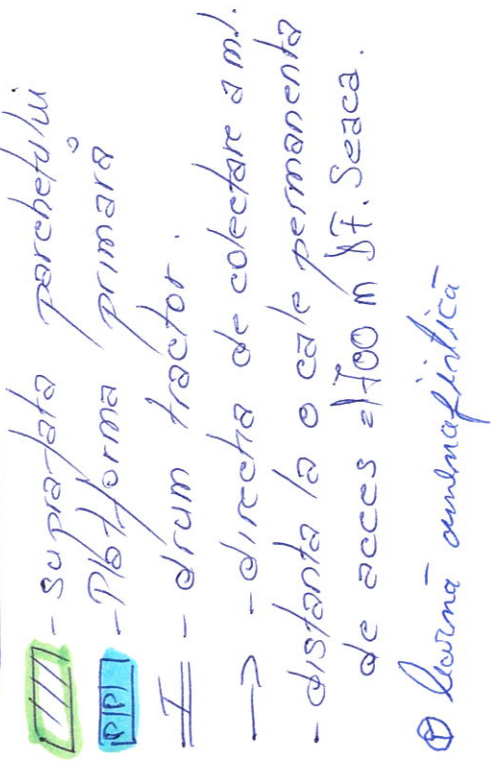 - suprafata parchetului
PP - Platforma primară
I - drum tractor.
→ - directia de colectare a m.l.
- distanta la o cale permanenta
de acces = 1700 m DF. Seaca.